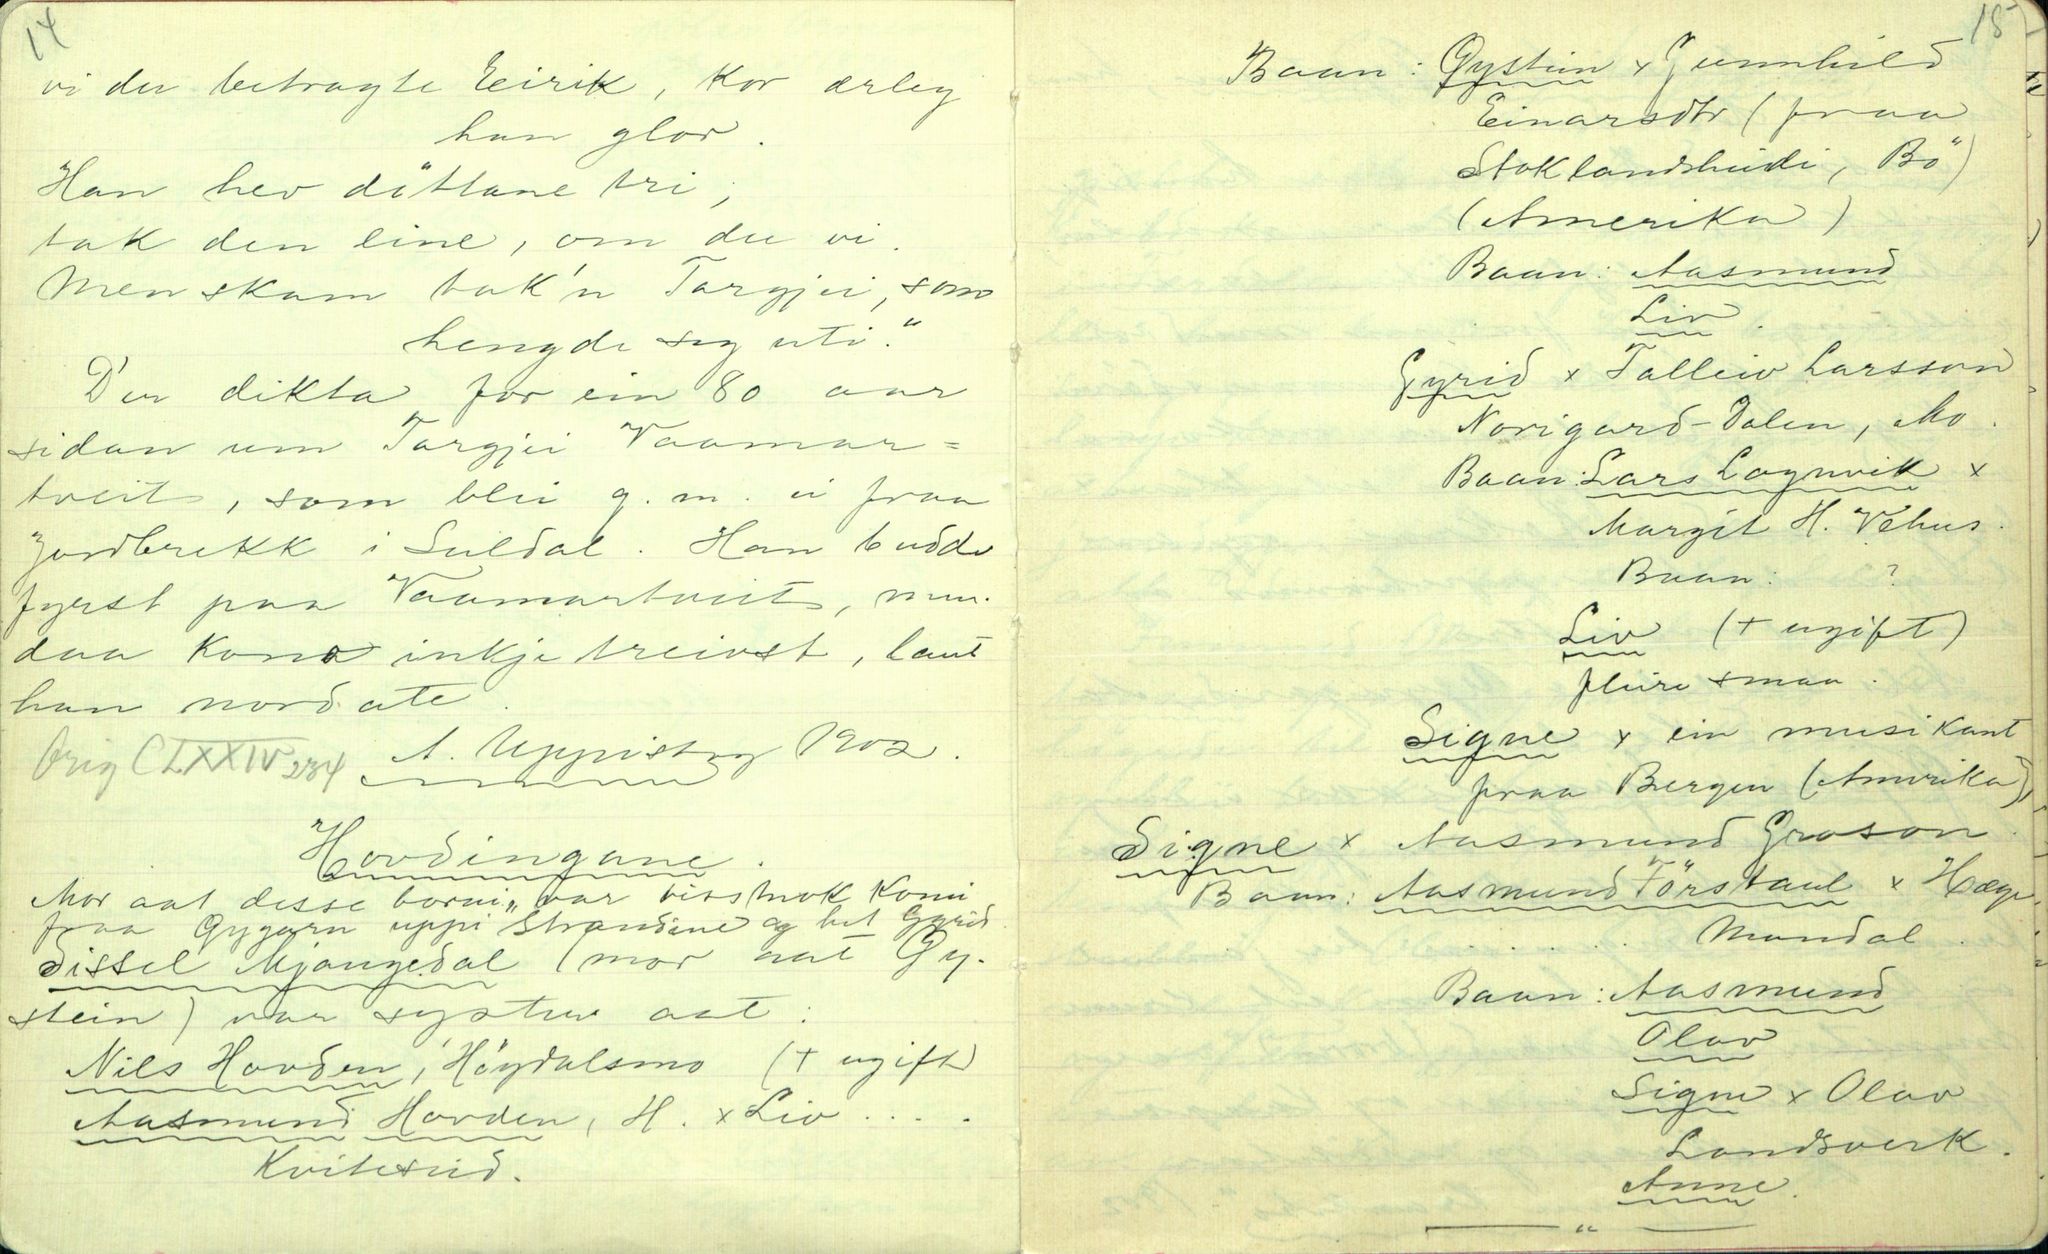 14
vi du betragte Eirik, kor ærleg
han glor.
Han hev döttane tri,
tak den eine, om du vi.
Men skam tak'n Targjei, som
hengde seg uti."
D'er dikta for ein 80 aar
sidan um Targjei Vaamar=
tveit, som blei g. m. ei fraa
Jordbrekk i Suldal. Han budde
fyrst paa Vaamartveit, men
daa kona inkje treivst, laut
han nord ate.
Orig CLXXIV 234 A. Uppistog 1902.
Hovdingane.
Mor aat desse borni" var visstnok komi
fraa Gygarn uppi Strandine og het Gyrid
Sissel Mjaugedal (mor aat Øy-
stein) var syster aat:
Nils Hovden, Høydalsmo (+ ugift)
Aasmund Hovden, H. x Liv . . . .
Kviteseid.
15
Baan: Øystein x Gunnhild
Einarsdtr (fraa
Stoklandsheidi, Bö)
(Amerika)
Baan: Aasmund
Liv.
Gyrid x Talleiv Larsson
Norigard-Dalen, Mo.
Baan: Lars Lognvik x
Margit H. Vehus.
Baan: ?
Liv (+ ugift)
fleire smaa.
Signe x ein musikant
fraa Bergen (Amerika)
Signe x Aasmund Groson.
Baan: Aasmund Förstaul x Hæge
. . . . . . Mandal.
Baan: Aasmund
Olav
Signe x Olav
Landsverk.
Anne.
— " —